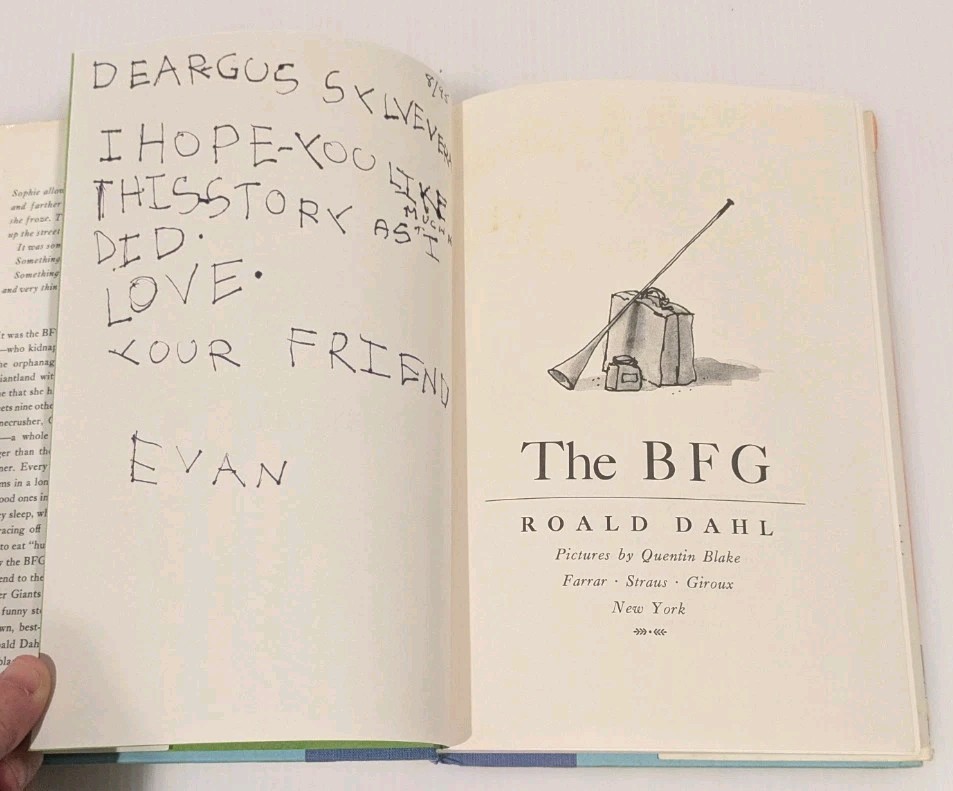 Sophie allow
and farther
she froze. T
up the street
It was som
Something
Something
and very thin
it was the BF
—who kidnap
he orphanag
iantland wit
e that she h
ets nine othe
necrusher, 
—a whole
ger than the
ner. Every
ms in a lon
ood ones in
y sleep, wh
racing off
to eat "hu
r the BFG
end to the
er Giants
funny sto
wn, best-
ald Dah
8/95
DEARGUS SYLVEVER
I HOPE-YOU LIKE
THISSTORY AS MUCH AS I
DID.
LOVE.
YOUR FRIEND
EVAN
The BFG
ROALD DAHL
Pictures by Quentin Blake
Farrar · Straus · Giroux
New York